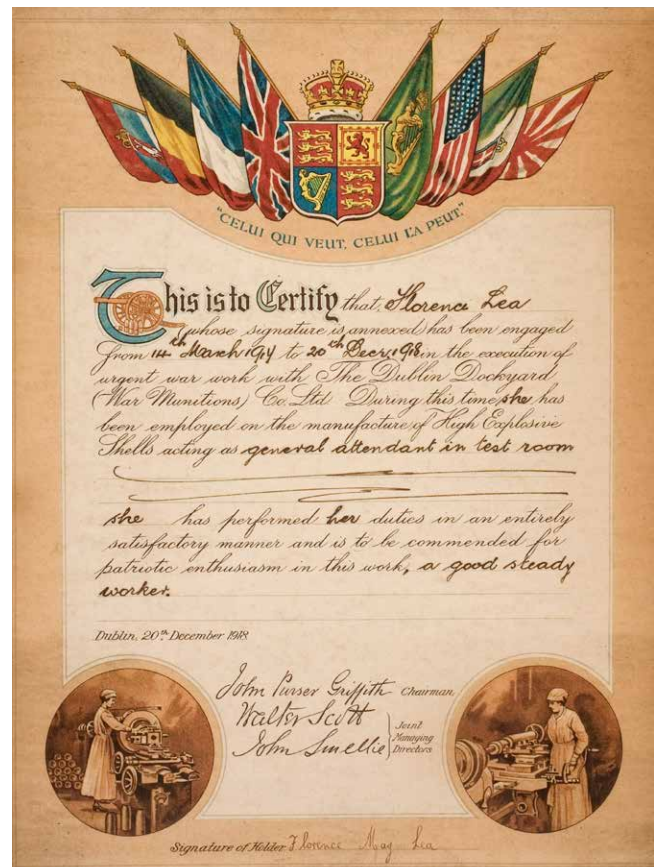 "CELUI QUI VEUT, CELUI LA PEUT."
This is to Certify that, Florence Lea
(whose signature is annexed) has been engaged
from 14th March 1917 to 20th Decr, 1918 in the execution of
urgent war work with The Dublin Dockyard
(War Munitions) Co. Ltd During this time she has
been employed on the manufacture of High Explosive
Shells acting as general attendant in test room
she has performed her duties in an entirely
satisfactory manner and is to be commended for
patriotic enthusiasm in this work, a good steady
worker.
Dublin, 20th December 1918
John Purser Griffith Chairman
Walter Scott
John Smellie
Joint
Managing
Directors
Signature of Holder Florence May Lea